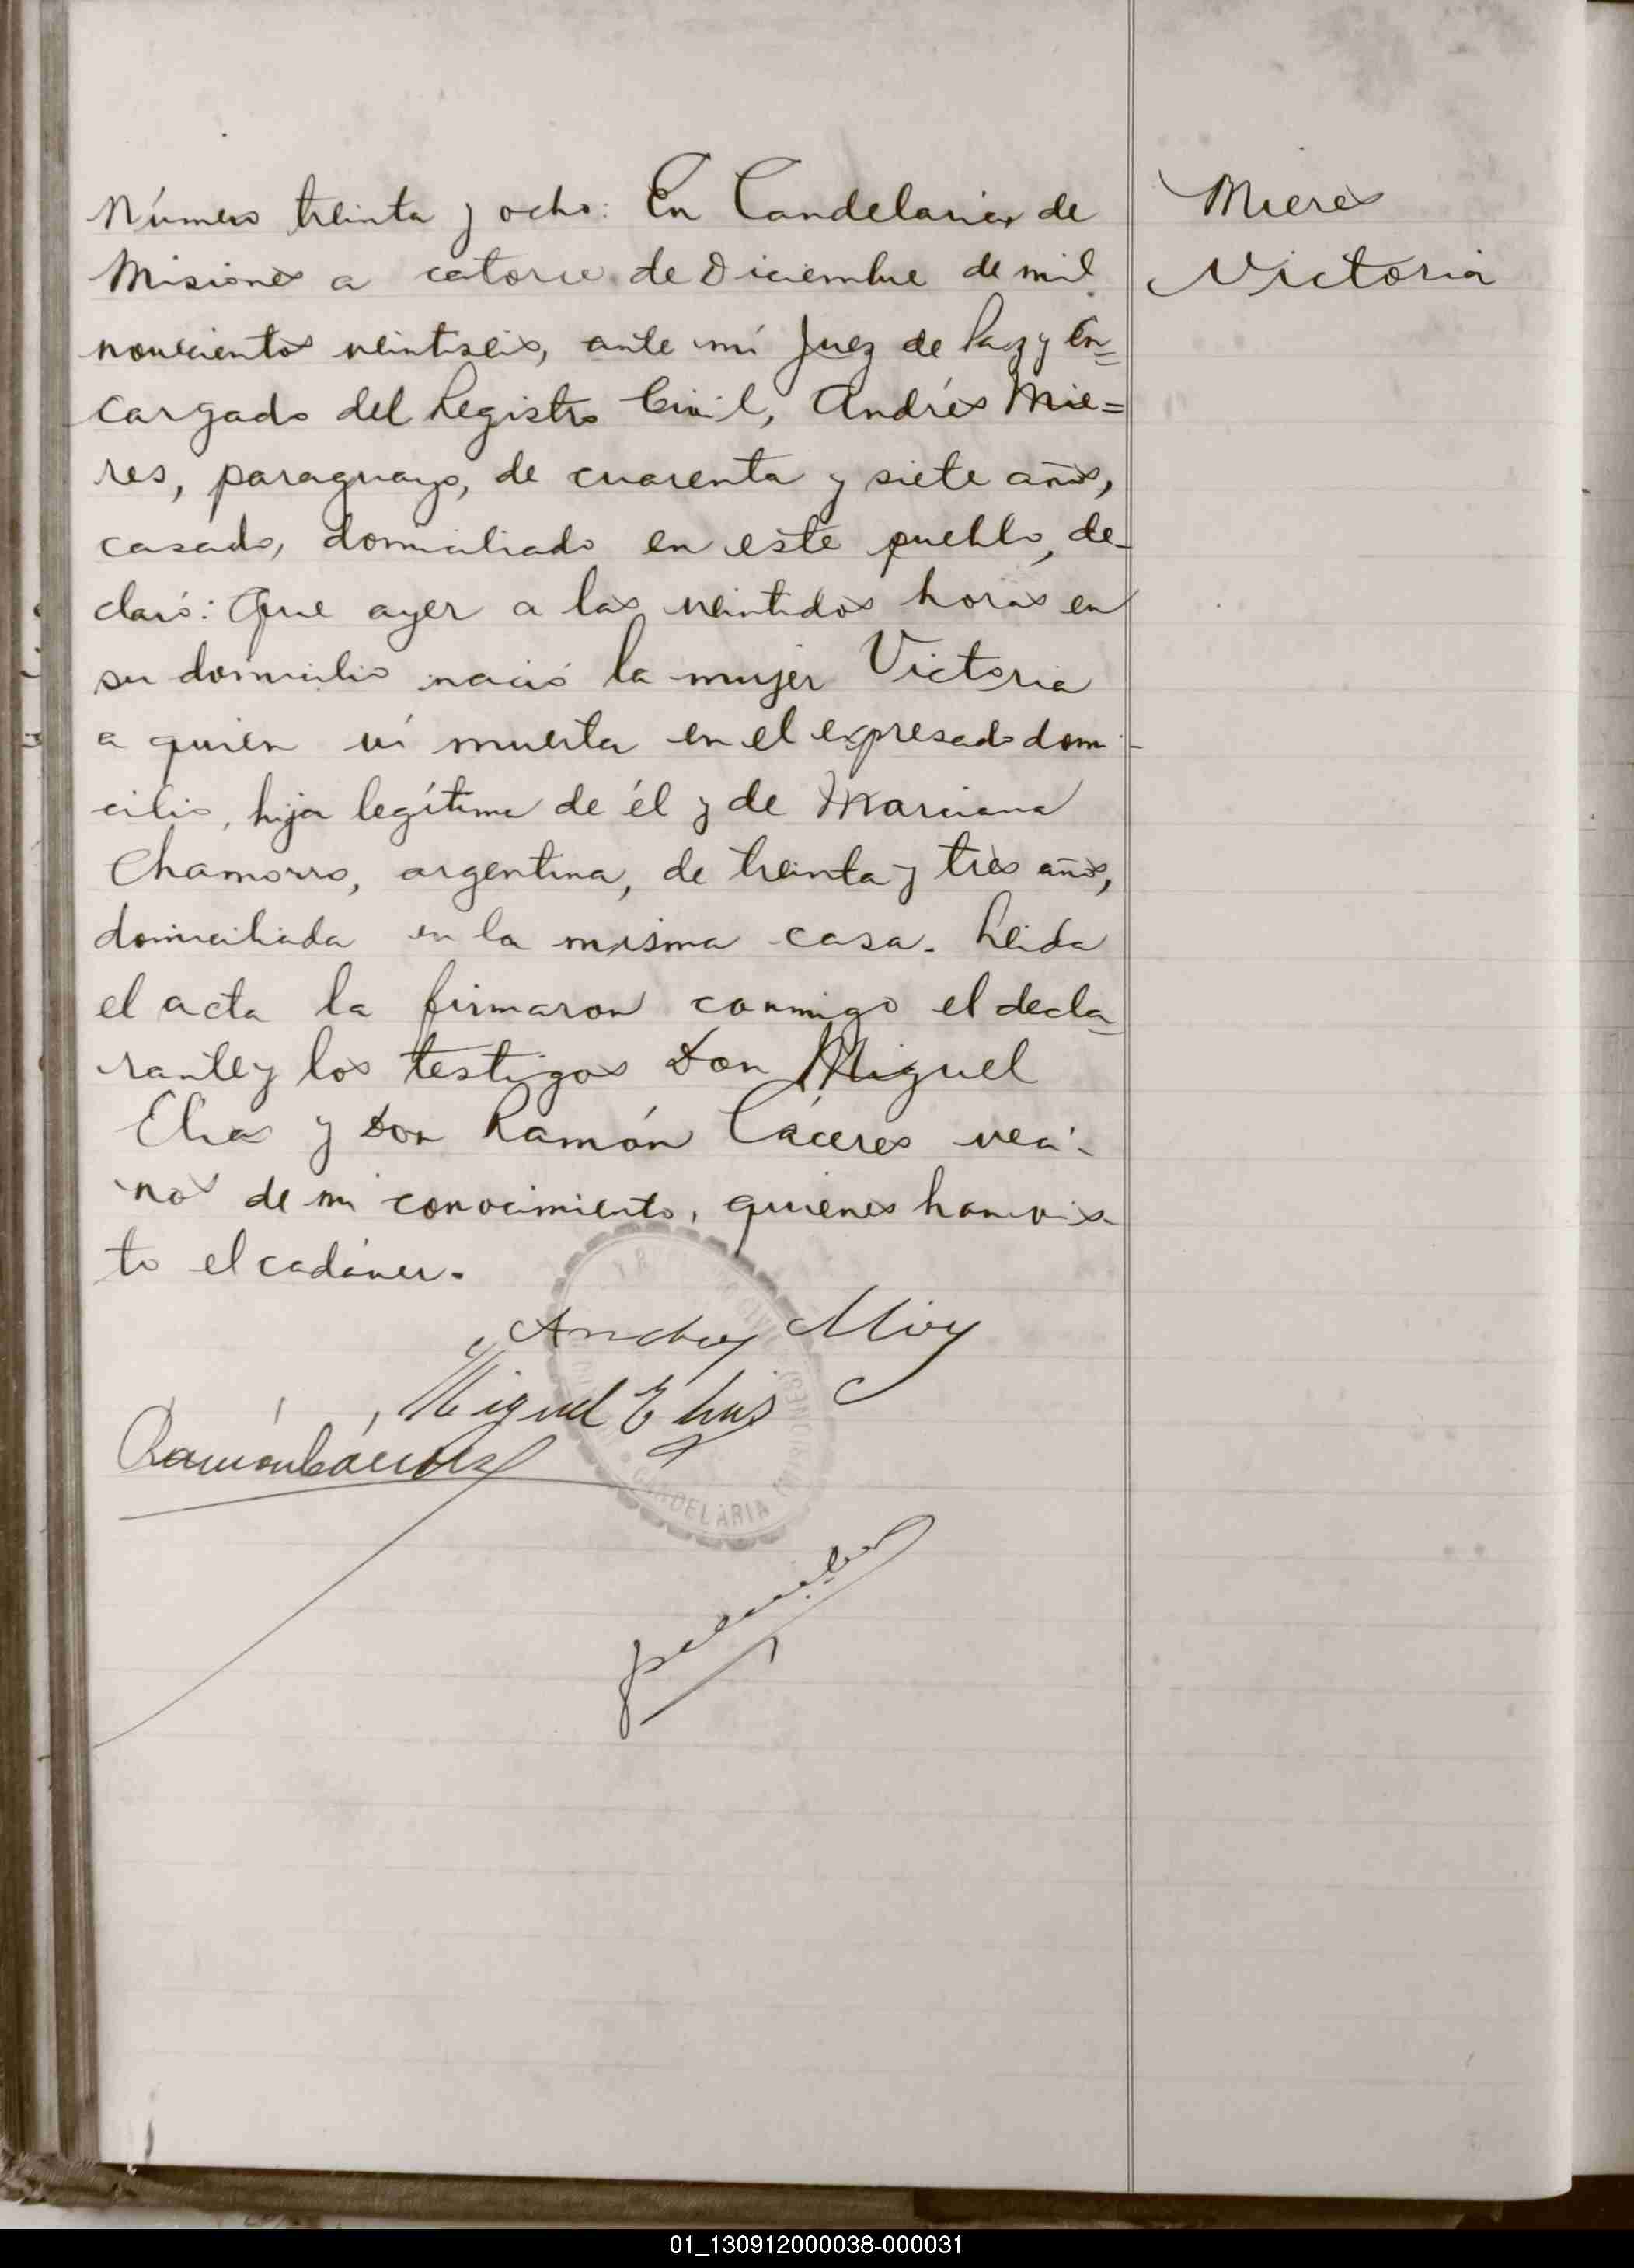 Número treinta y ocho: En Candelaria de
Misiones a catorce de Diciembre de mil
novecientos veintiseis, ante mí Juez de Paz y En=
cargado del Registro Civil, Andrés Mie=
res, paraguayo, de cuarenta y siete años,
casado, domiciliado en este pueblo, de-
claró: Que ayer a las veintidos horas en
su domicilio nació la mujer Victoria
a quien ví muerta en el expresado domi-
cilio, hija legítima de él y de Marciana
Chamorro, argentina, de treinta y tres años,
domiciliada en la misma casa. Leida
el acta la firmaron conmigo el decla-
rante y los testigos Don Miguel
Elias y Don Ramón Cáceres veci-
nos de mi conocimiento, quienes han vis-
to el cadáver.
Mieres
Victoria
Andres
Miguel Elias
Ramón Cáceres
CANDELARIA
01_130912000038-000031